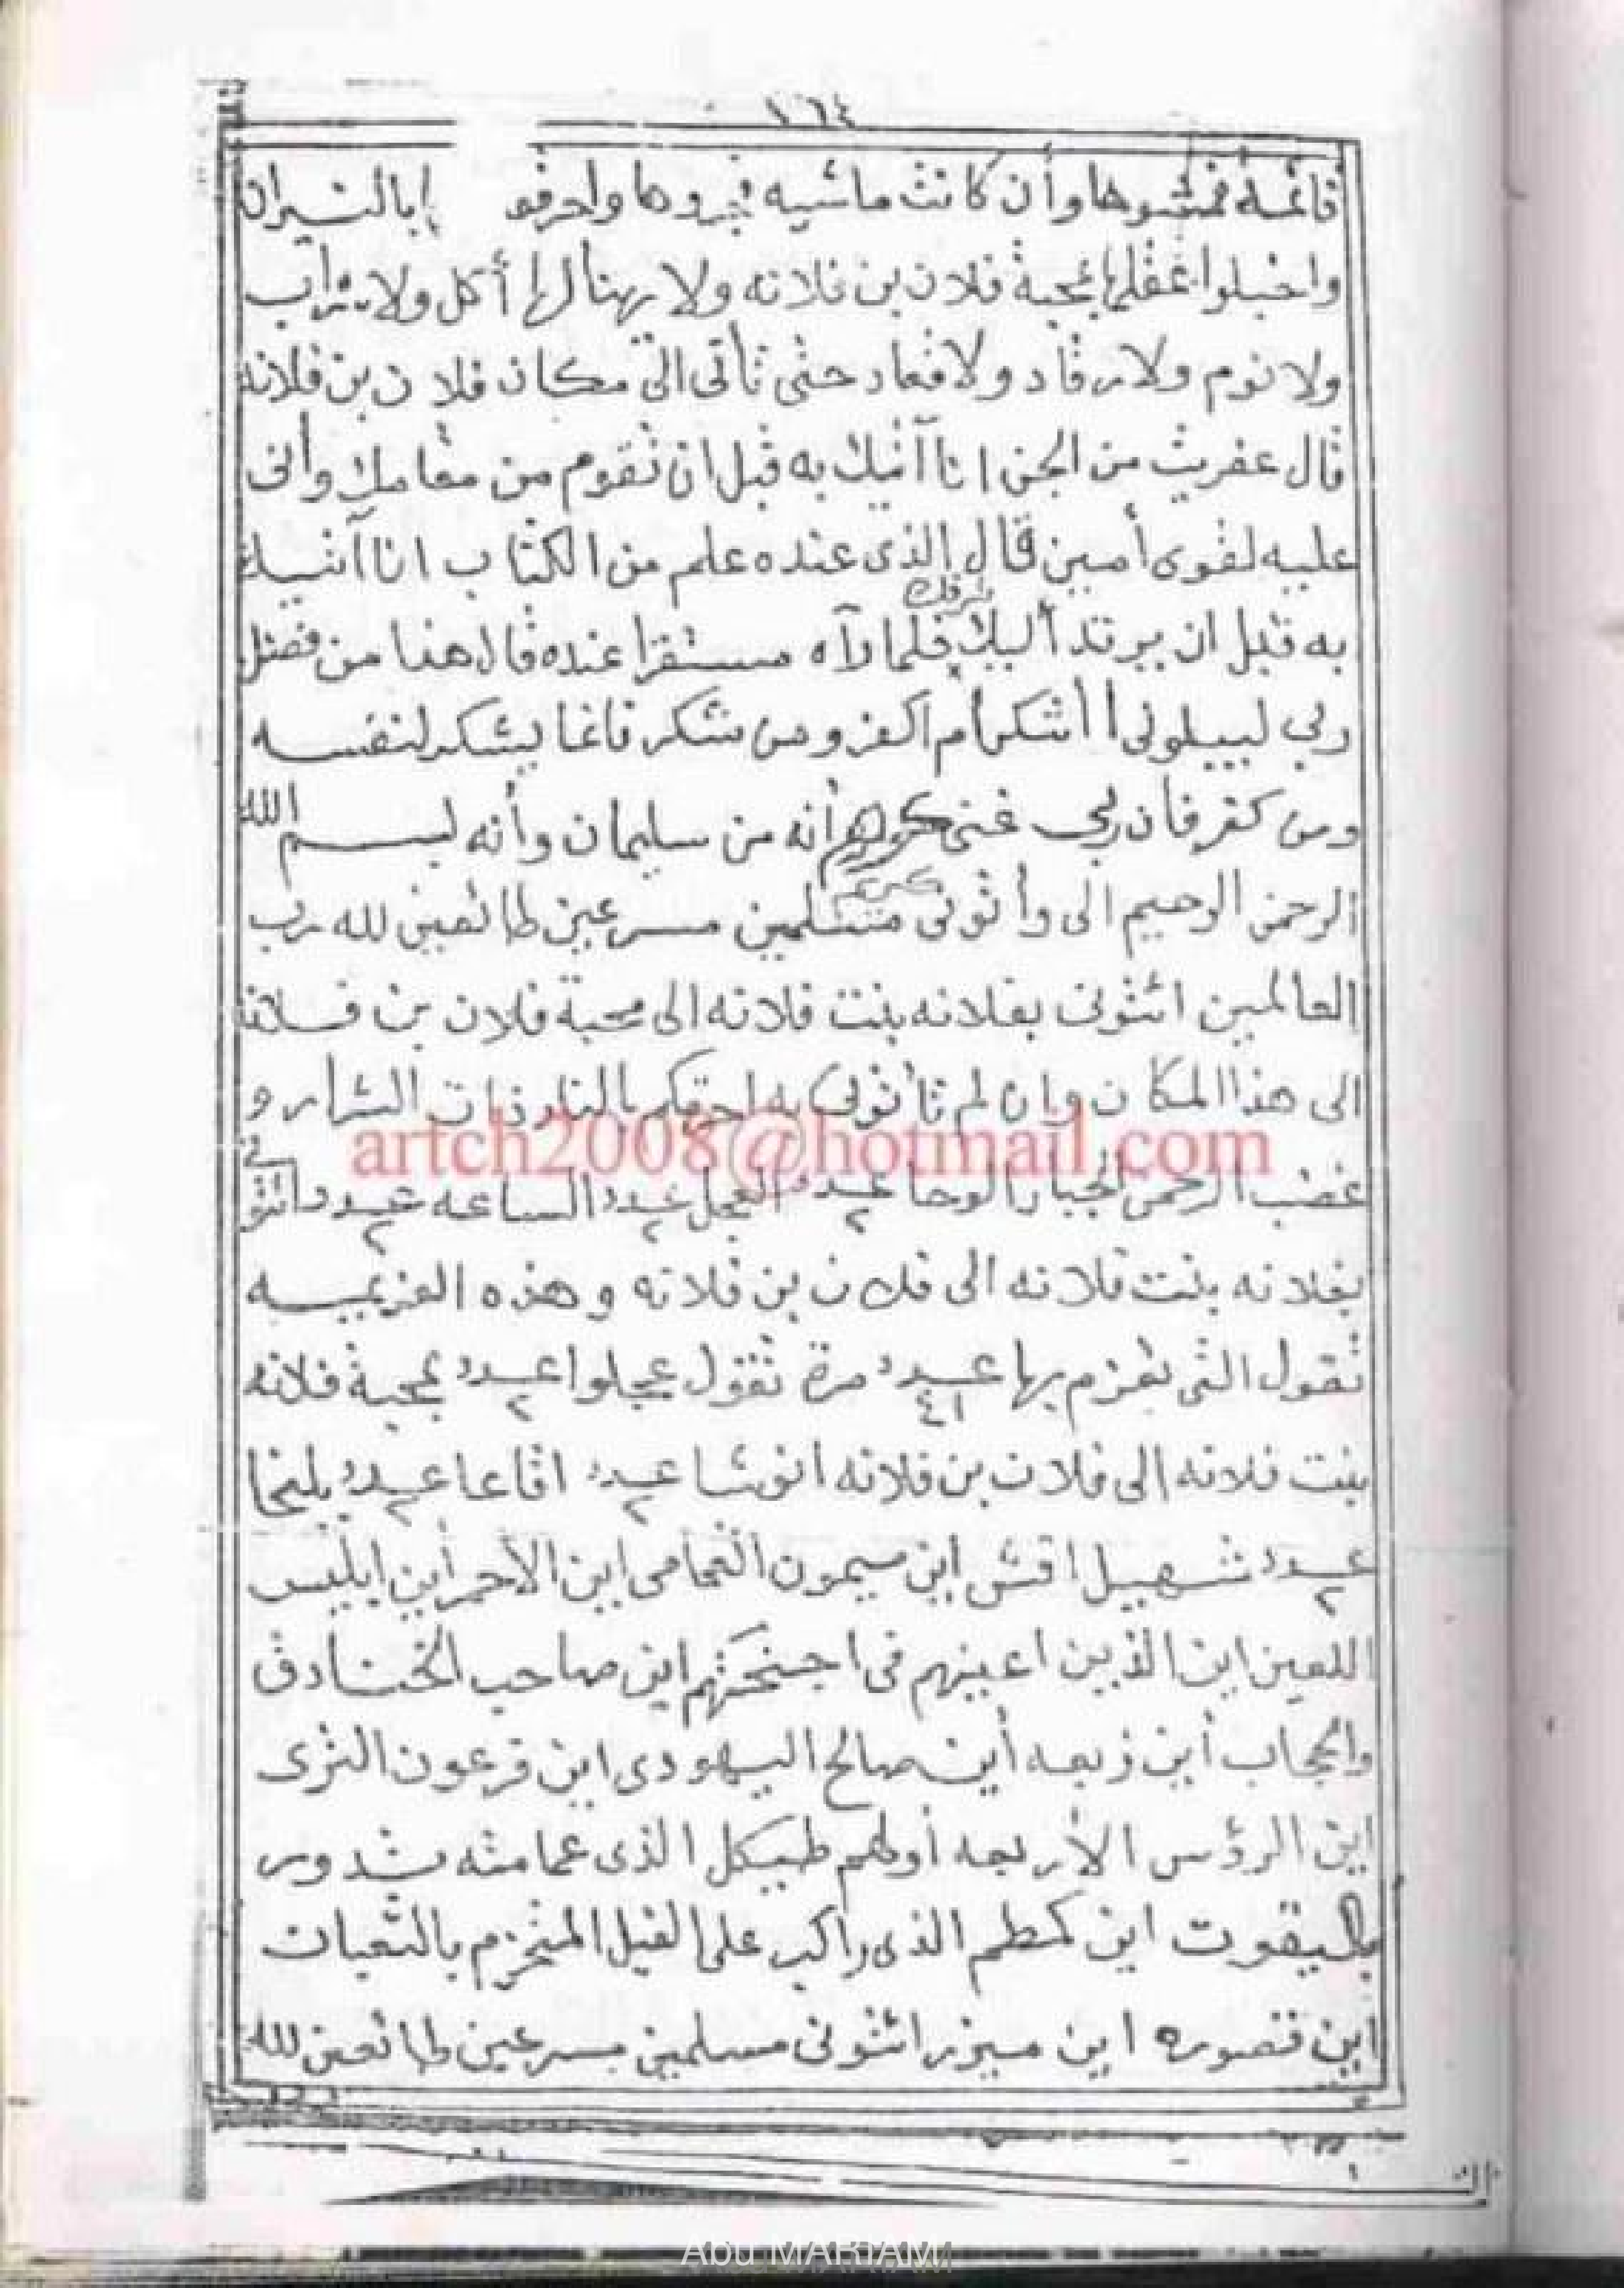 ١٦٤
قائمة فمشوها وأن كانت ماشيه فجروها واحرقو ابالنيران
واخبلوا عقلها بمحبة فلان بن فلانه ولا يهنا لها أكل ولا شراب
ولا نوم ولا رقاد ولا قعاد حتى تأتى الى مكان فلان بن فلانه
قال عفريت من الجن انا آتيك به قبل ان تقوم من مقامك وأنى
عليه لقوى أمين قال الذى عنده علم من الكتاب انا آتيك
به قبل ان يرتد أليك طرفك فلما رآه مستقرا عنده قال هذا من فضل
ربي ليبلونى أ أشكر أم اكفر ومن شكر فانما يشكر لنفسه
ومن كفر فان ربي غنى كريم أنه من سليمان وأنه لبسم الله
الرحمن الرحيم الى وأتونى مسلمين مسرعين طائعين لله رب
العالمين ائتونى بفلانه بنت فلانه الى محبة فلان بن فلانة
الى هذا المكان وان لم تأتونى به احرقكم بالنار ذات الشرار و
artch2008@hotmail.com
غضب الرحمن الجبار الوحا عدد ٢ العجل عدد ٢ الساعه عدد ٢ ائتونى
بفلانه بنت فلانه الى فلان بن فلانه وهذه العزيميه
تقول التى تعزم بها عدد ٤١ مرة تقول عجلوا عدد ٢ بمحبة فلانه
بنت فلانه الى فلان بن فلانه انوشا عدد ٢ اقاعا عدد ٢ يلنخا
عدد ٢ شهيل اقش اين ميمون الغمامى اين الأحمر أين ابليس
اللعين اين الذين اعينهم فى اجنحتهم اين صاحب الخنادق
والحجاب أين زبعه أين صالح اليهودى اين فرعون النزى
اين الرؤس الأربعه أولهم طيكل الذى عمامته تدور
بالياقوت اين كمطم الذى راكب على الفيل المتحزم بالثعبان
اين قنصوره اين ميزر ائتونى مسلمين مسرعين طائعين لله
Abu MARIAM